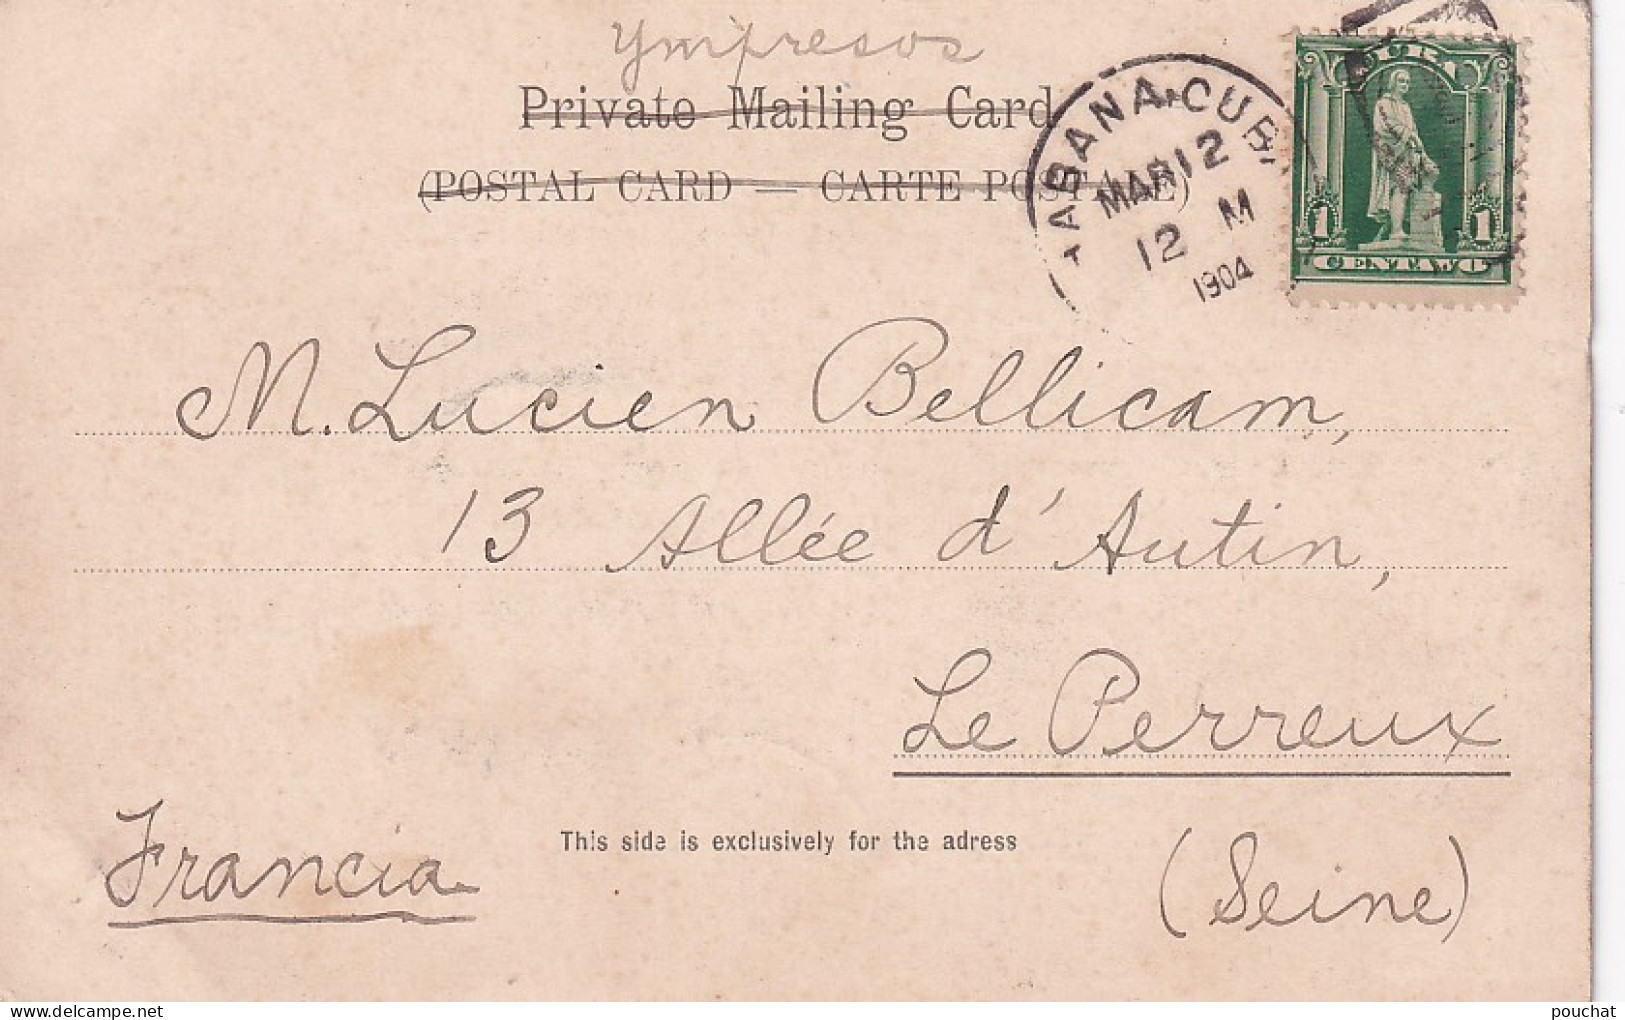 Ympresos
Private Mailing Card
(POSTAL CARD — CARTE POSTALE)
HABANA, CUBA
MAR 12
12 M
1904
CUBA
1 1
CENTAVO
M. Lucien Bellicam,
13 Allée d'Autin,
Le Perreux
This side is exclusively for the adress
(Seine)
Francia
pouchat